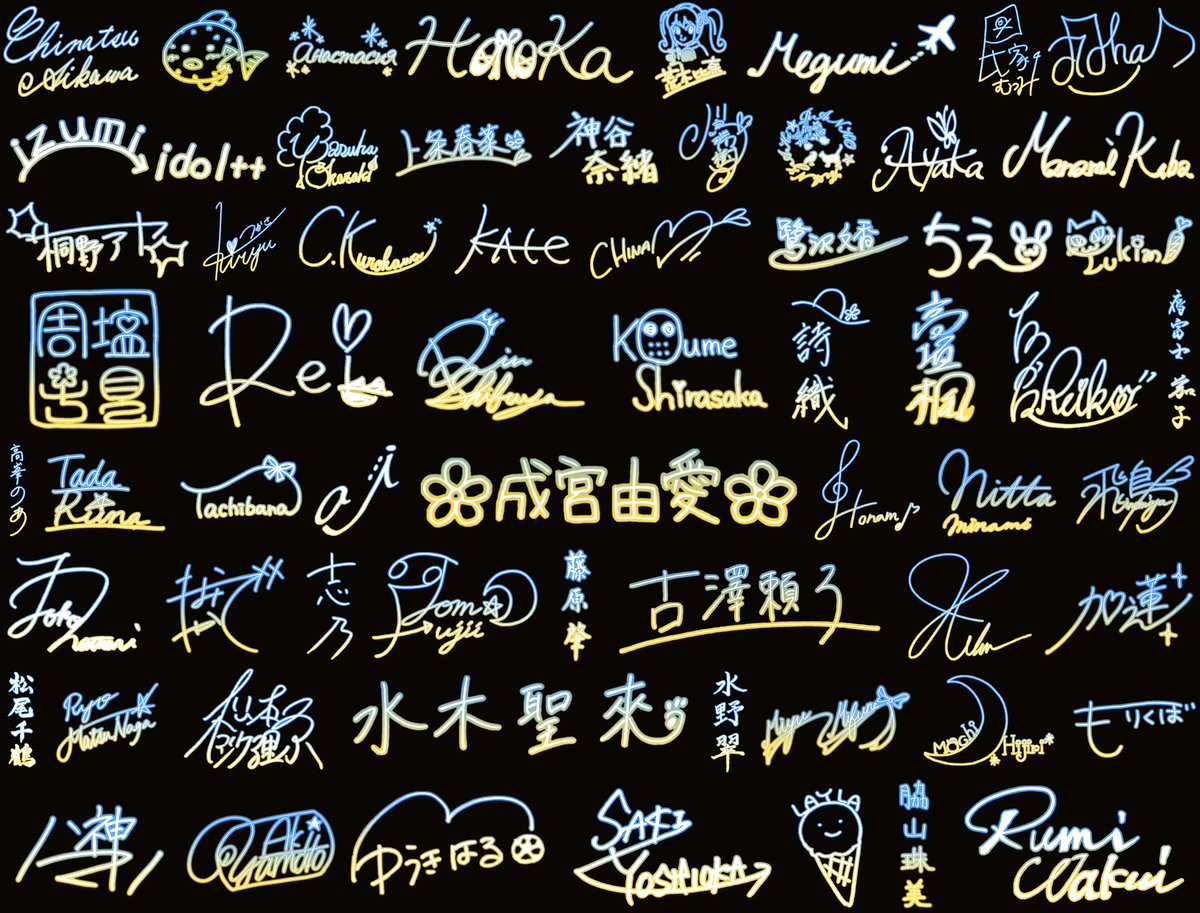 Chinatsu
Aikawa
анастасия
Honoka
荒木比奈
Megumi
氏家
むつみ
izumi
idol++
Yasuha
Okazaki
上条春菜
神谷
奈緒
Ayaka
Manami Kaba
桐野アヤ
つかさ
Kiryu
C.Kurokawa
Kate
CHINA
鷺沢文香
ちえ
Yukimi
周
塩
Rei
Rin
Shibuya
Koume
Shirasaka
詩
織
高
垣
楓
"Riko"
鷹富士茄子
高峯のあ
Tada
Riina
Tachibana
aji
成宮由愛
Honami
Nitta
minami
飛鳥
Ninomiya
志乃
Tomo
Fujii
藤原肇
古澤頼子
加蓮
松尾千鶴
Ryo
MatsuNaga
水木聖來
水野翠
Miyu Mifune
Mochi
Hijiri
もりくぼ
八神
Aki
Yamato
ゆうきはる
SAKI
YOSHIOKA
LAYLA
脇山珠美
Rumi
Wakui